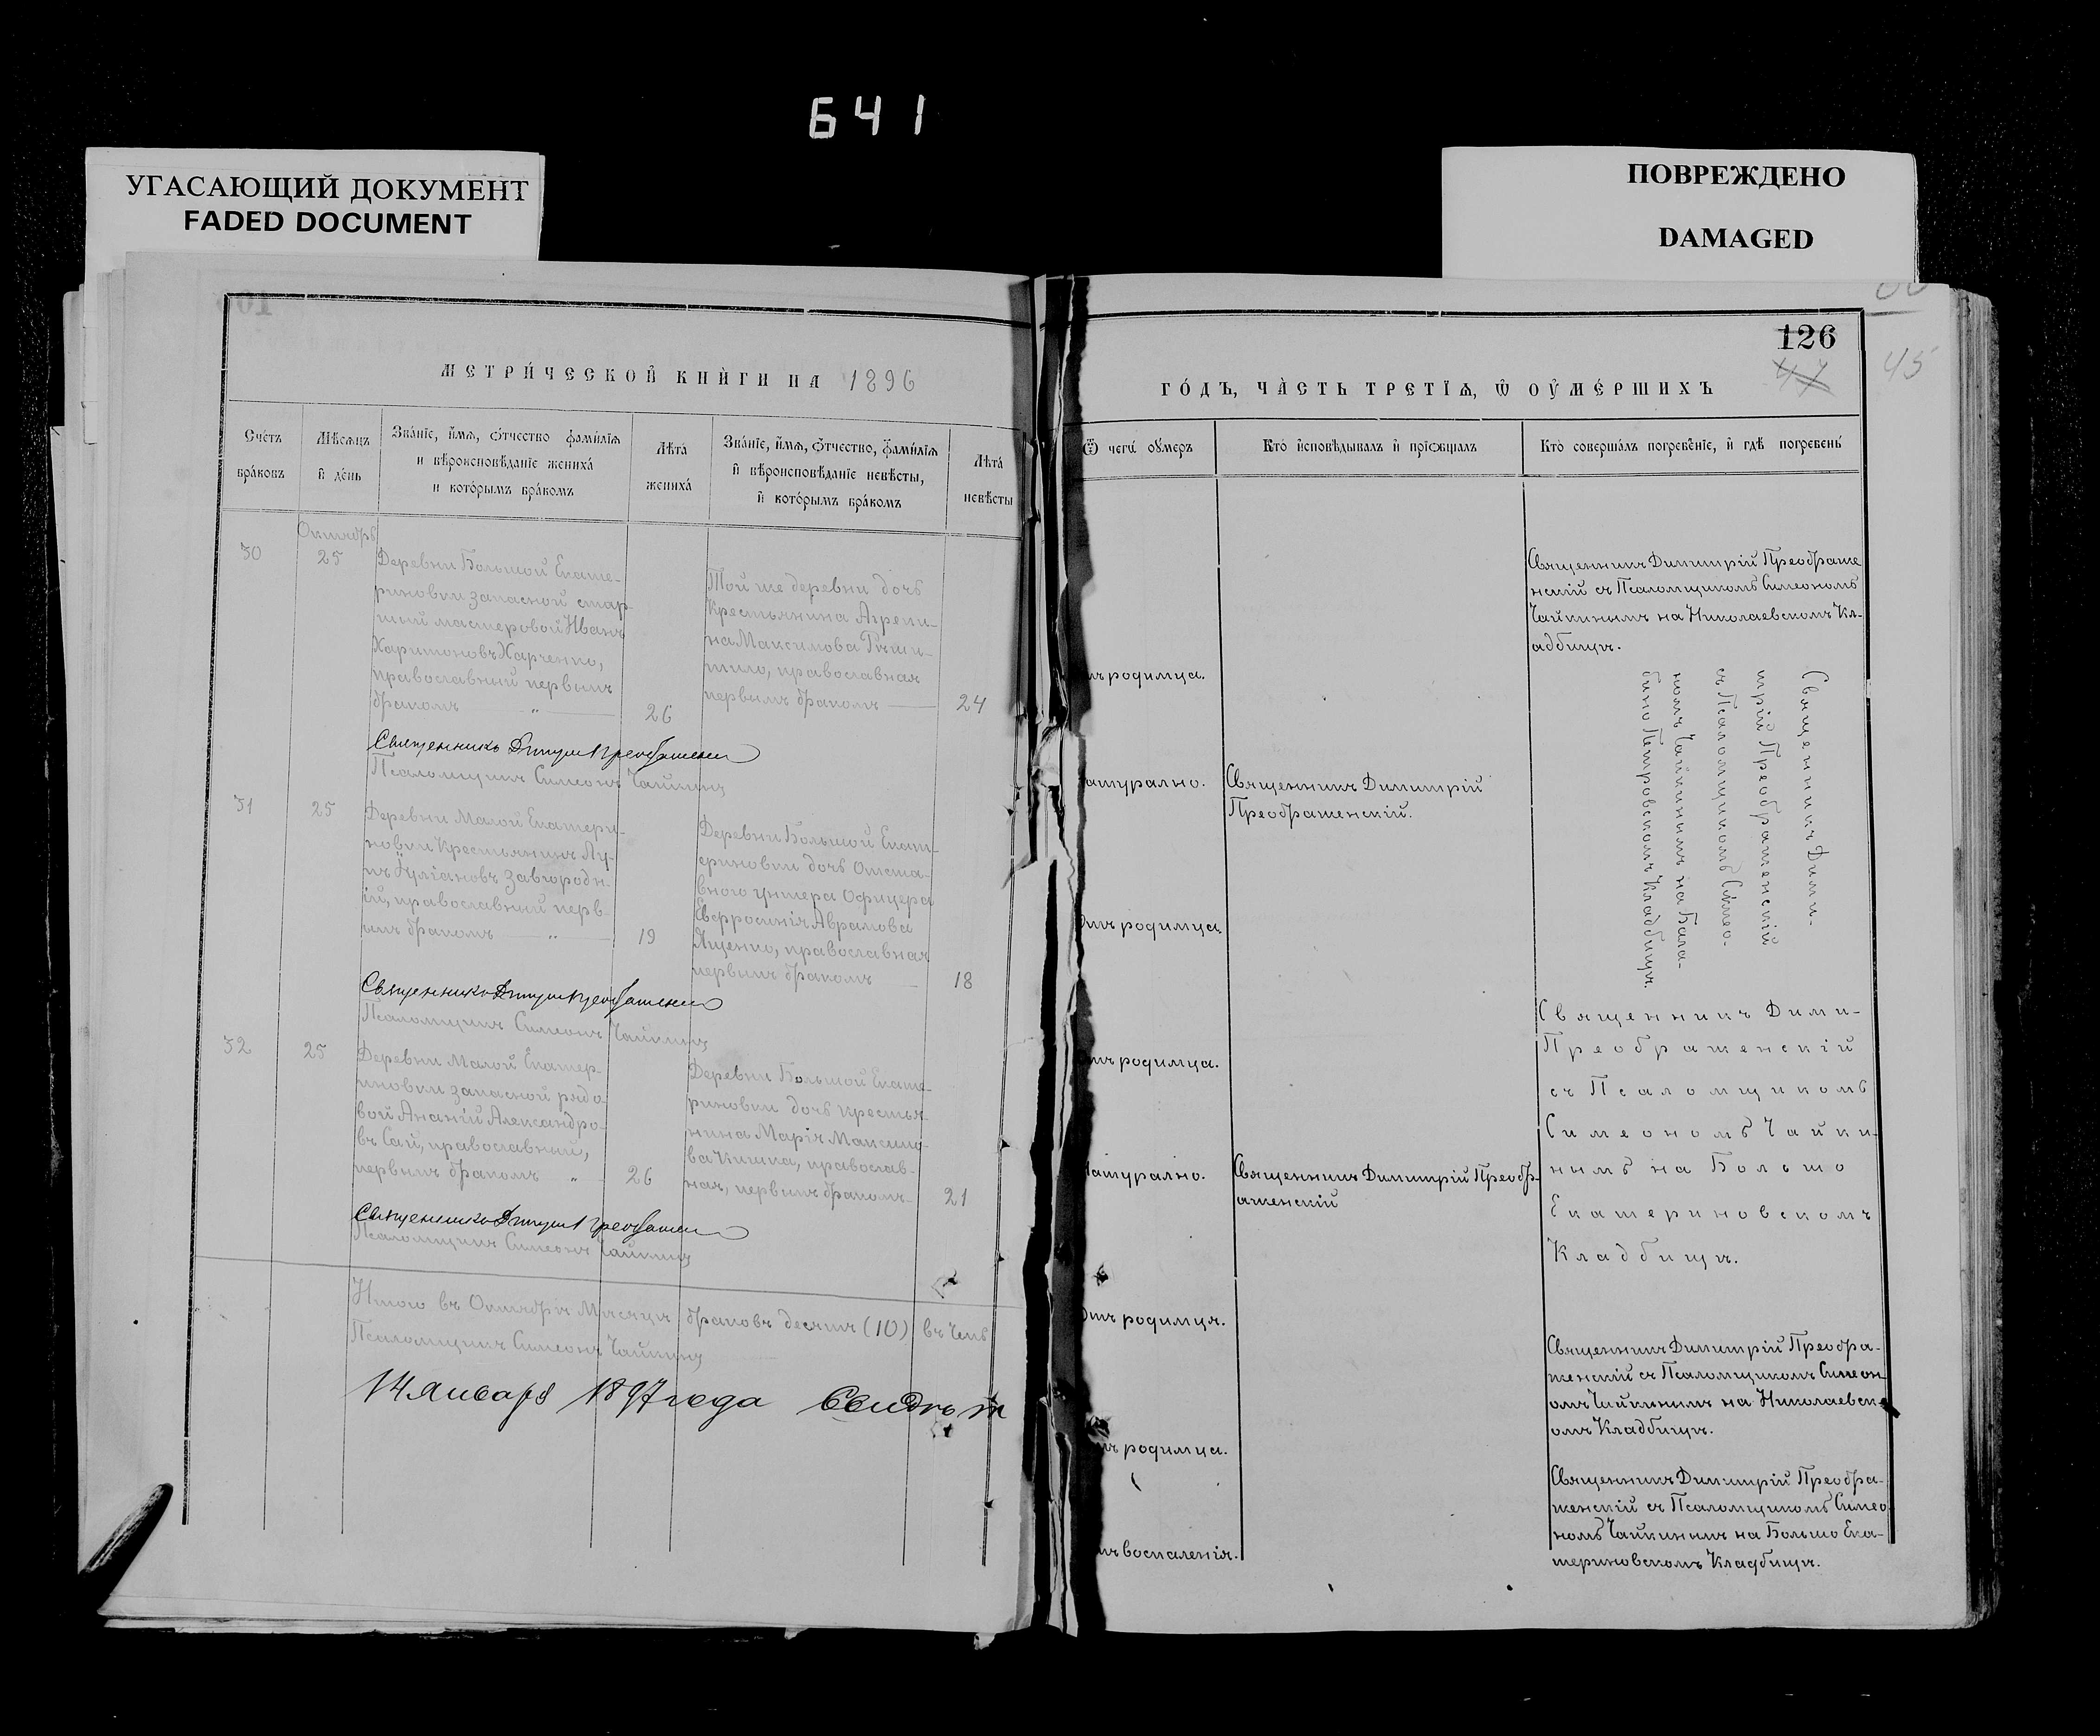 641
УГАСАЮЩИЙ ДОКУМЕНТ
FADED DOCUMENT
ПОВРЕЖДЕНО
DAMAGED
МЕТРИ́ЧЕСКОЙ КНИ́ГИ НА 1896
Сче́тъ браковъ
Мѣ́сѧцъ и҆ де́нь
Зва́нїе, и҆́мѧ, ѻ҆́тчество фами́лїѧ и вѣроисповѣ́данїе жениха̀ и кото́рымъ бра́комъ
Лѣта̀ жениха̀
Зва́нїе, и҆́мѧ, ѻ҆́тчество, фами́лїѧ и҆ вѣроисповѣ́данїе невѣ́сты, и҆ кото́рымъ бра́комъ
Лѣта̀ невѣ́сты
Октябрь
30
25
Деревни Большой Екате-
риновки запасной стар-
шій мастеровой Иванъ
Харитоновъ Харченко,
православный первымъ
бракомъ — „ —
26
Той же деревни дочь
Крестьянина Агрепи-
на Максимова
православная
первымъ бракомъ —
24
Священникъ Дмитрій Преображен
Псаломщикъ Симеонъ Чайкинъ
31
25
Деревни Малой Екатери-
новки Крестьянинъ Лу-
Завгородн-
ій, православный перв-
ымъ бракомъ — „ —
19
Деревни Большой Екат-
ериновки дочь Отста-
вного унтера Офицера
Евфросинія Аврамова
Яценко, православная
первымъ бракомъ —
18
Священникъ Дмитрій Преображен
Псаломщикъ Симеонъ Чайкинъ
32
25
Деревни Малой Екатер-
иновки запасной рядо-
вой Ананій Александро-
въ Сай, православный,
первымъ бракомъ „
26
Деревни Большой Екате-
риновки дочь крестья-
нина Марія Максимо-
ва Кишка, православ-
ная, первымъ бракомъ-
21
Священникъ Дмитрій Преображен
Псаломщикъ Симеонъ Чайкинъ
Итого въ Октябрѣ Мѣсяцѣ браковъ десять (10)
Псаломщикъ Симеонъ Чайкинъ
14 Января 1897 года
126
45
ГО́ДЪ, ЧА́СТЬ ТРЕТЇѦ, Ѡ҆ ОУ҆МЕ́РШИХЪ
Ѿ чегѡ̀ оу҆́меръ
Кто̀ и҆сповѣ́дывалъ и҆ прїѡбща́лъ
Кто̀ соверша́лъ погребе́нїе, и҆ гдѣ̀ погребены̀
Священникъ Димитрій Преображе
нскій съ Псаломщикомъ Симеономъ
Чайкинымъ на Николаевскомъ Кл-
адбищѣ.
родимца.
Священникъ Дими-
трій Преображенскій
съ Псаломщикомъ Симео-
номъ Чайкинымъ на Бала-
бино Петровскомъ Кладбищѣ.
атурално.
Священникъ Димитрій
Преображенскій.
родимца.
Священникъ Дими-
Преображенскій
съ Псаломщикомъ
Симеономъ Чайки-
нымъ на Большо
Екатериновскомъ
Кладбищѣ.
родимца.
Натурално.
Священникъ Димитрій Преобр-
аженскій
родимця.
Священникъ Димитрій Преобра-
женскій съ Псаломщикомъ Симеон-
омъ Чайкинымъ на Николаевск-
омъ Кладбищѣ.
родимца.
Священникъ Димитрій Преобра-
женскій съ Псаломщикомъ Симео
номъ Чайкинымъ на Большо Ека-
териновскомъ Кладбищѣ.
воспаленія.